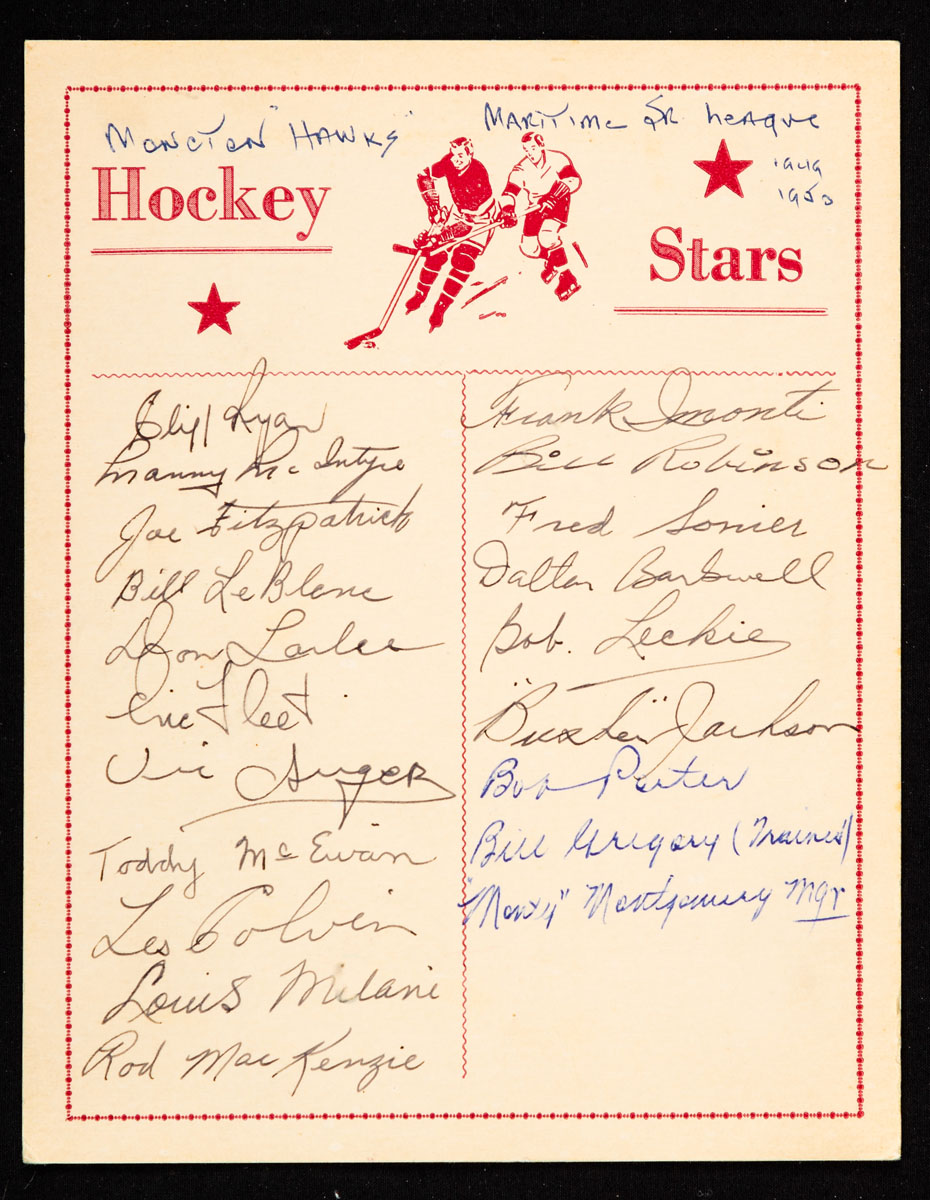 Moncton "Hawks"
Maritime Sr League
1949
1950
Hockey
Stars
Cliff Ryan
Manny McIntyre
Joe Fitzpatrick
Bill LeBlanc
Don Larlee
Eric Fleet
Vic Auger
Toddy McEwan
Les Colvin
Louis Milani
Rod MacKenzie
Frank Imonti
Bill Robinson
Fred
Dalton Bardwell
Bob. Leckie
"Buster" Jackson
Bob Porter
Bill Gregory (Trainer)
"Monty" Montgomery Mgr